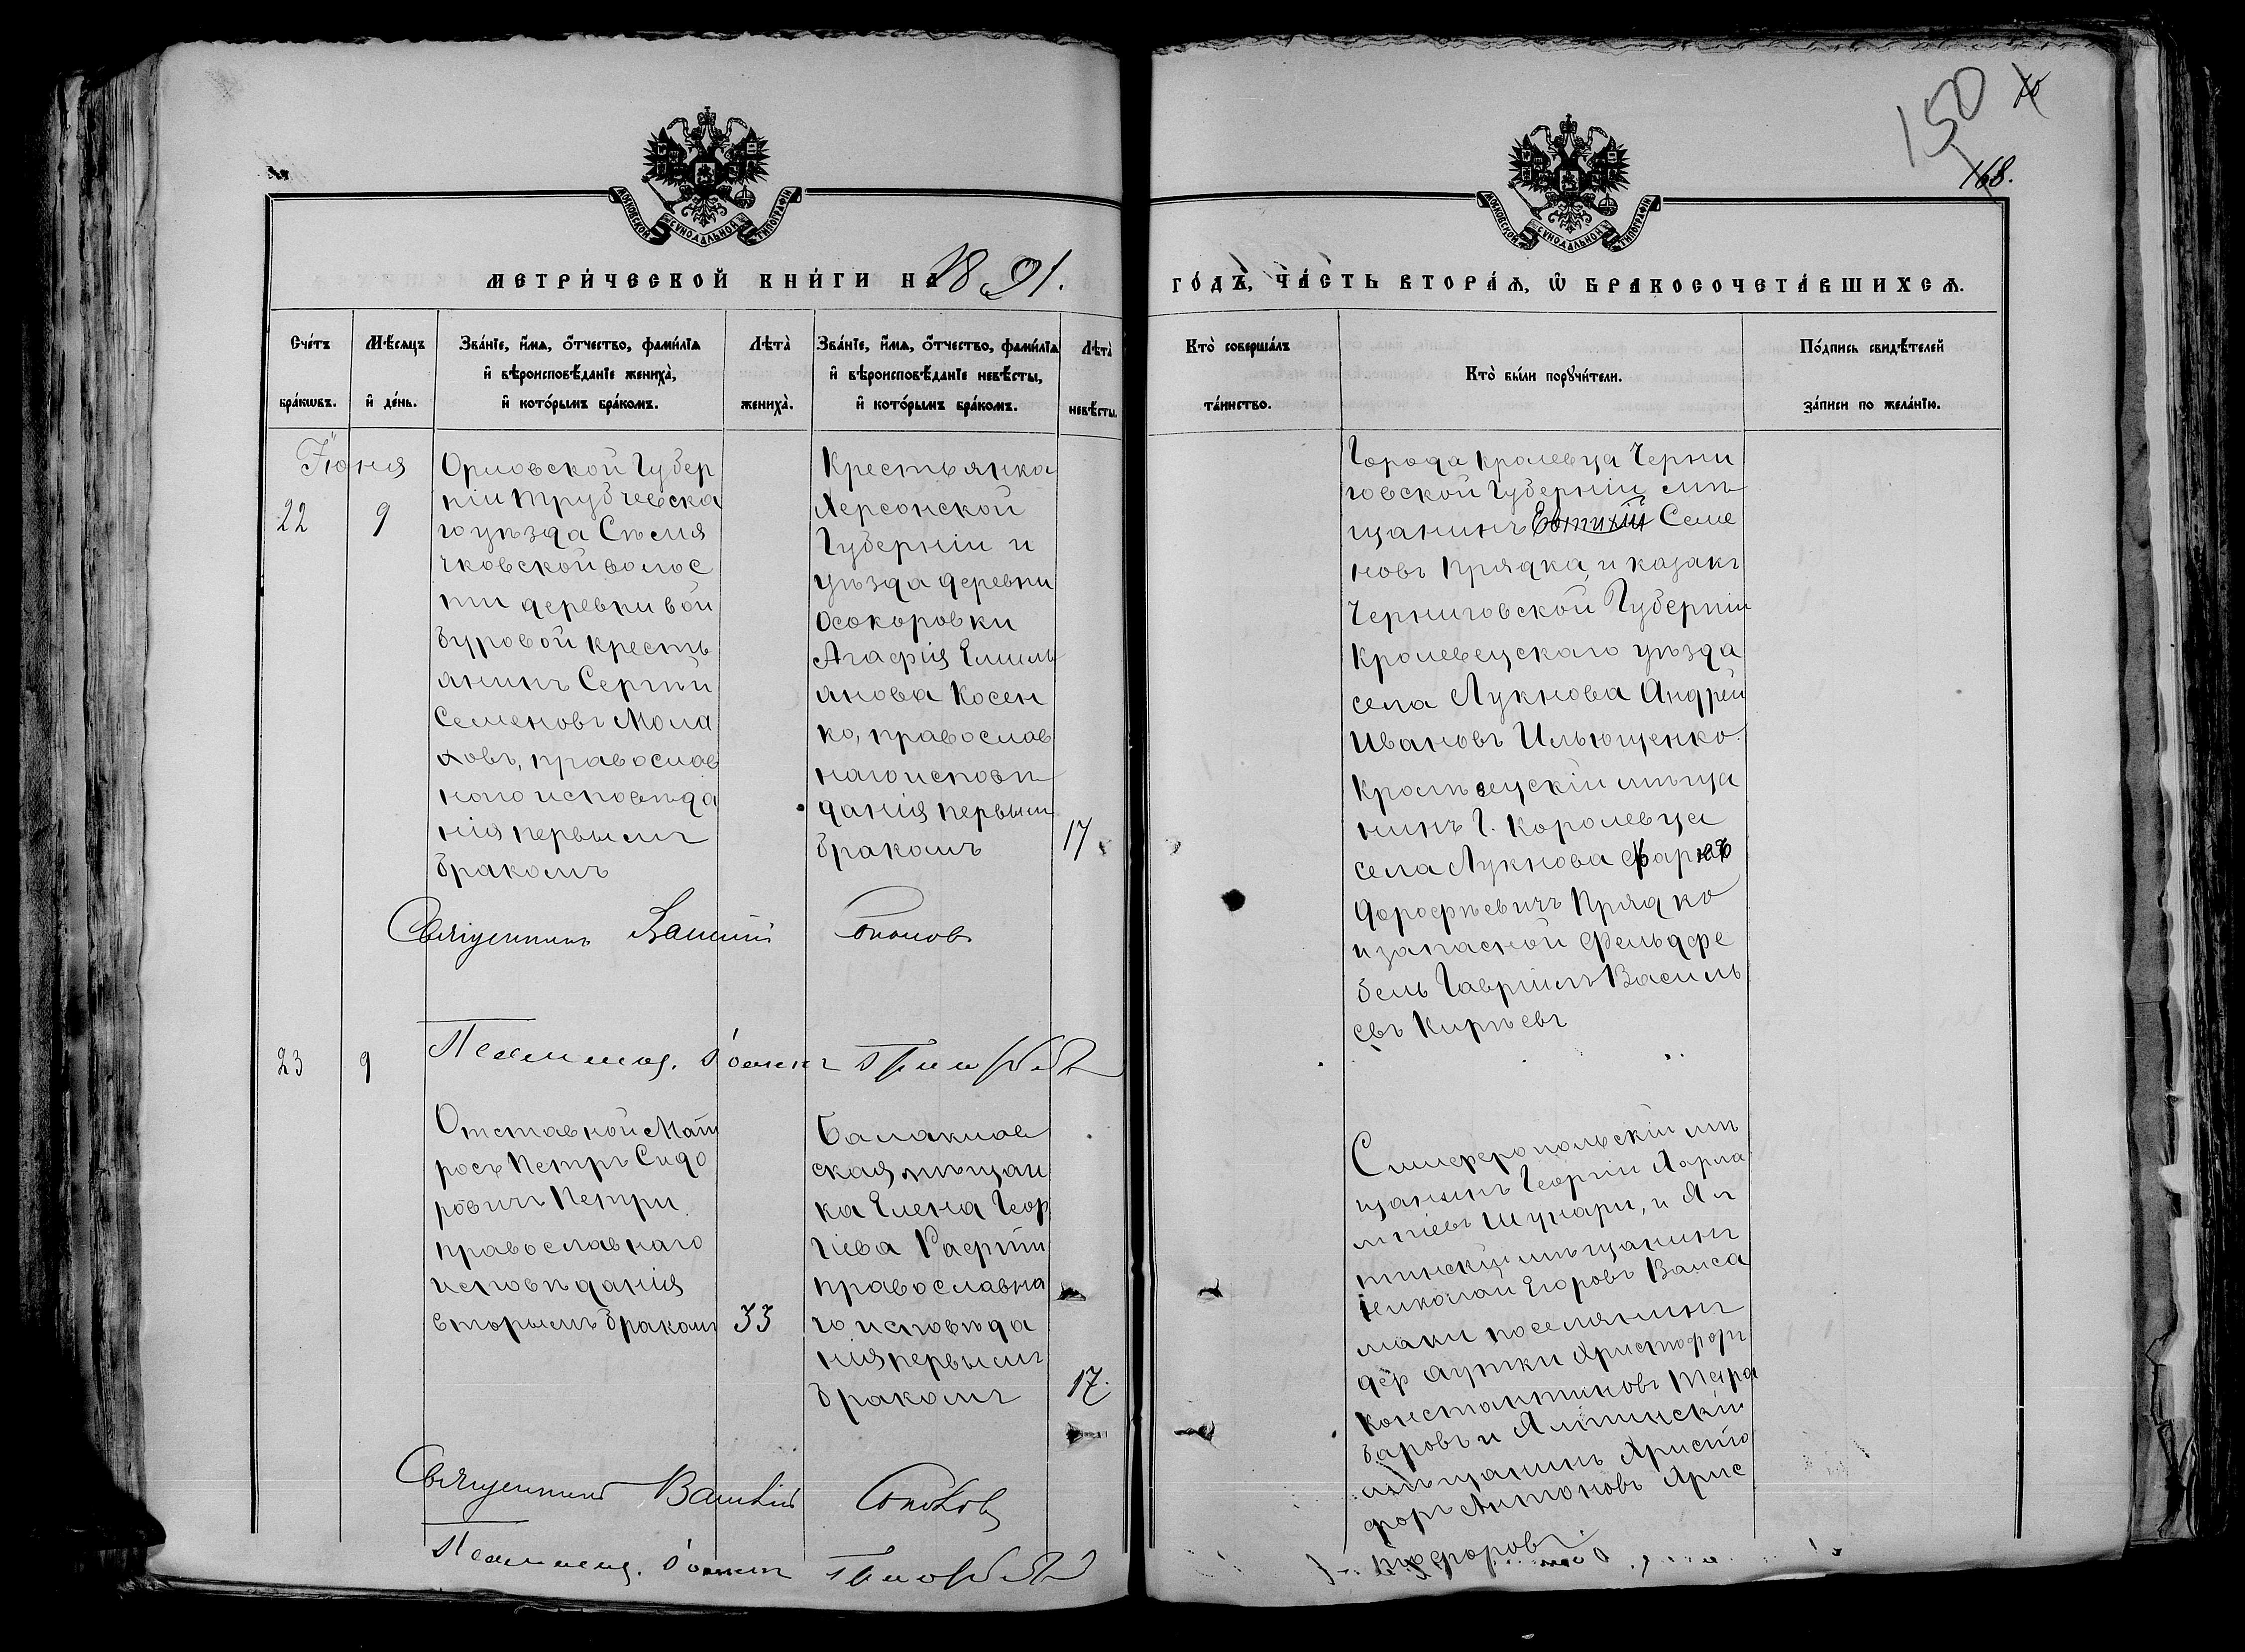 150
168.
МОСКОВСКОЙ СѴНОДАЛЬНОЙ ТИПОГРАФІИ
МОСКОВСКОЙ СѴНОДАЛЬНОЙ ТИПОГРАФІИ
МЕТРИ́ЧЕСКОЙ КНИ́ГИ НА 1891.
ГО́ДЪ, ЧА́СТЬ ВТОРА́Ѧ, Ѿ БРАКОСОЧЕТА́ВШИХСѦ.
Сче́тъ бра́кѡвъ.
Мѣ́сяцъ и҆ де́нь.
Зва́нїе, и҆́мѧ, ѻ҆́тчество, фами́лїѧ
и҆ вѣроисповѣ́данїе жениха̀,
и҆ кото́рымъ бра́комъ.
Лѣта̀ жениха̀.
Зва́нїе, и҆́мѧ, ѻ҆́тчество, фами́лїѧ
и҆ вѣроисповѣ́данїе невѣ́сты,
и҆ кото́рымъ бра́комъ.
Лѣта̀ невѣ́сты.
Кто̀ соверша́лъ
та́инство.
Кто̀ бы́ли порꙋчи́тели.
По́дпись свидѣ́телей
за́писи по жела́нїю.
Іюня
22
9
Орловской Губер
ніи Трубчевска
го уѣзда Сѣмя
чковской волос
ти деревни вой
буровой кресть
янинъ Сергѣй
Семеновъ Мола
ховъ, православ
наго исповѣда
нія первымъ
бракомъ
Крестьянка
Херсонской
Губерніи и
уѣзда деревни
Осокоровки
Агафія Емель
янова Косен
ко, православ
наго исповѣ
данія первым
бракомъ
17
Города кролевца Черни
говской Губерніи мѣ
щанинъ Евтихій Семе
новъ Прядка, и казакъ
Черниговской Губерніи
Кролевецкаго уѣзда
села Лукнова Андрей
Ивановъ Ильющенко.
Кролевецкій мѣща
нинъ г. королевца
села Лукнова
Дорофѣевичъ Прядко
и запасной Фельдфе
бель Гавріилъ Василь
евъ Кирѣевъ
Священникъ Василій
23
9
Отставной Мат
росъ Петръ Сидо
ровичъ Петри
православнаго
исповѣданія
вторымъ бракомъ
33
Балаклав
ская мѣщан
ка Елена Геор
гіева
православна
го исповѣда
нія первымъ
бракомъ
17.
Симферопольскій мѣ
щанинъ Георгій Харла
мпіевъ Шунари, и Ял
тинскій мѣщанинъ
Николай Егоровъ Ваиса
маки поселянинъ
дер Аутки Христофоръ
Константиновъ Тара
баровъ и Ялтинскій
мѣщанинъ Христо
форъ Антоновъ Хрис
тофоровъ.
Священникъ Василій